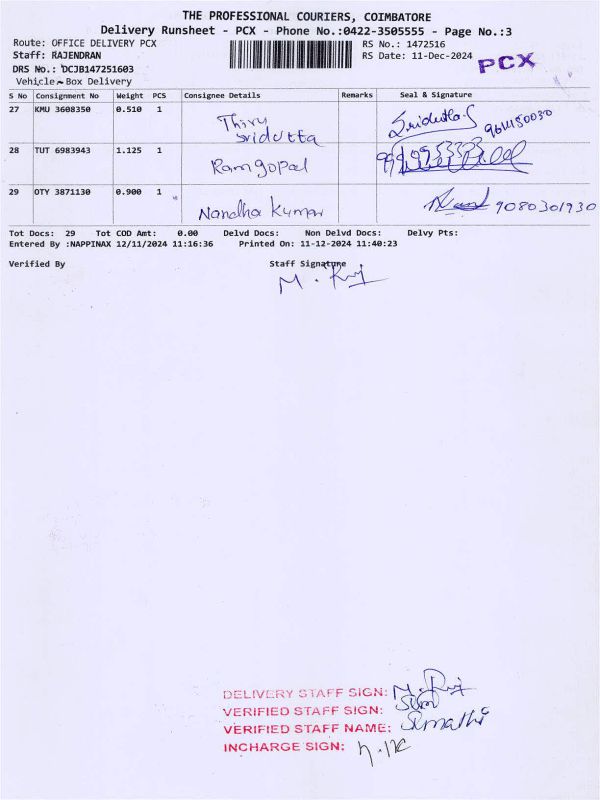 THE PROFESSIONAL COURIERS, COIMBATORE
Delivery Runsheet - PCX - Phone No.:0422-3505555 - Page No.:3
Route: OFFICE DELIVERY PCX
RS No.: 1472516
Staff: RAJENDRAN
RS Date: 11-Dec-2024
PCX
DRS No.: DCJB147251603
Vehicle - Box Delivery
S No Consignment No Weight PCS Consignee Details Remarks Seal & Signature
27 KMU 3608350 0.510 1 Thiru Sridutta
28 TUT 6983943 1.125 1 Ramgopal
29 OTY 3871130 0.900 1 Nandha Kumar 9080301930
Tot Docs: 29 Tot COD Amt: 0.00 Delvd Docs: Non Delvd Docs: Delvy Pts:
Entered By :NAPPINAX 12/11/2024 11:16:36 Printed On: 11-12-2024 11:40:23
Verified By Staff Signature
M. Raj
DELIVERY STAFF SIGN: M. Raj
VERIFIED STAFF SIGN:
VERIFIED STAFF NAME: Sumathi
INCHARGE SIGN: